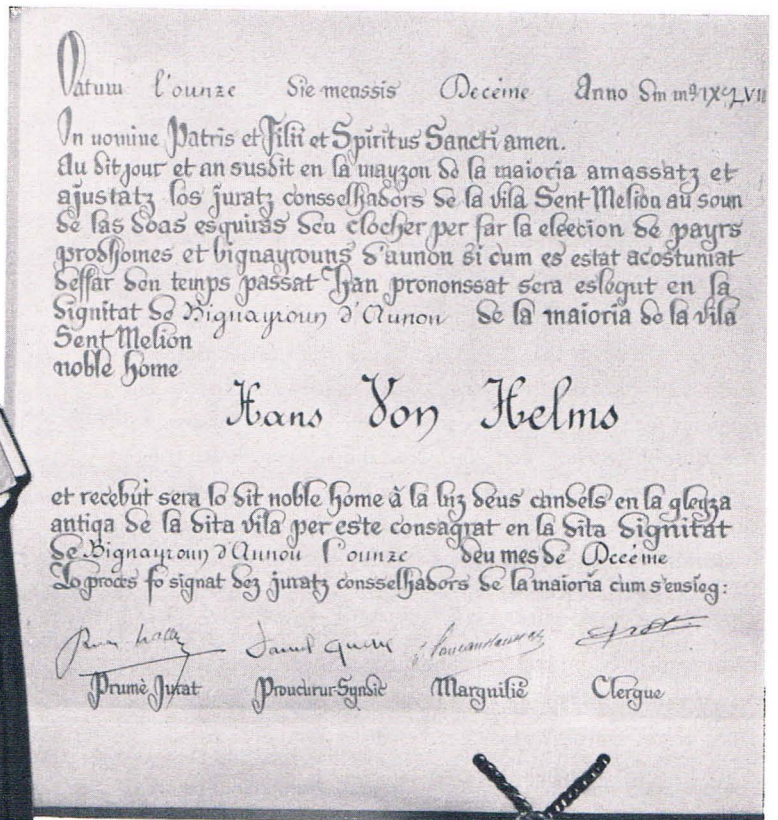 Datum l'ounze die menssis Decéme Anno Dm
In nomine Patris et Filii et Spiritus Sancti amen.
Au dit jour et an susdit en la mayzon de la maioria amassatz et
ajustatz los juratz consselhadors de la vila Sent Melion au soun
de las doas esquiras deu clocher per far la elecion de payrs
prodhomes et bignayrouns d'aunon si cum es estat acostumat
deffar don temps passat Han prononssat sera eslegut en la
dignitat de Bignayroun d'Aunon de la maioria de la vila
Sent Melion
noble home
Hans Von Helms
et recebut sera lo dit noble home à la luz deus candels en la gleyza
antiga de la dita vila per este consagrat en la dita dignitat
de Bignayroun d'Aunou l'ounze deu mes de Decéme
Lo procés fo signat dez juratz consselhadors de la maioria cum s'ensieg:
Prumè Jurat Proucurur-Syndic Marguilié Clergue